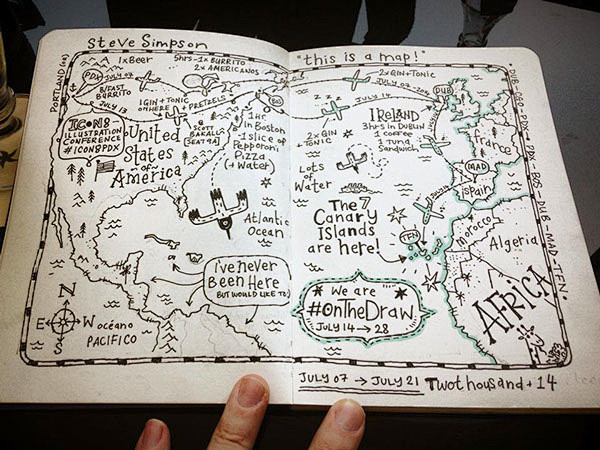 Steve Simpson
"this is a map!"
PORTLAND (OR)
1x Beer
5hrs-1x BURRITO
2x AMERICANOS
2x GIN + TONIC
PDX
JULY 07
B/FAST
BURRITO
JULY 13
1 GIN + TONIC
OTHERE
+ PRETZELS
JULY 14
DUB
ICON8
ILLUSTRATION
CONFERENCE
#ICON8PDX
United
States
of
America
SCOTT
BAKAL
(SEAT 9A)
BOS
1hr
in Boston
1 slice of
Pepporoni
Pizza
(+ Water)
Z Z Z
2x GIN
+ TONIC
IRELAND
3hrs in DUBLIN
1 coffee
1 tuna
Sandwich
France
MAD
Spain
Lots
of
Water
Atlantic
Ocean
The 7
Canary
Islands
are here!
TFN
Morocco
Algeria
AFRICA
I've never
Been Here
BUT WOULD LIKE TO
We are
#OnTheDraw
JULY 14 → 28
N
W
E
S
océano
PACIFICO
DUB-CGO-PDX → PDX-BOS-DUB-MAD-TFN.
JULY 07 → JULY 21 Twothousand + 14